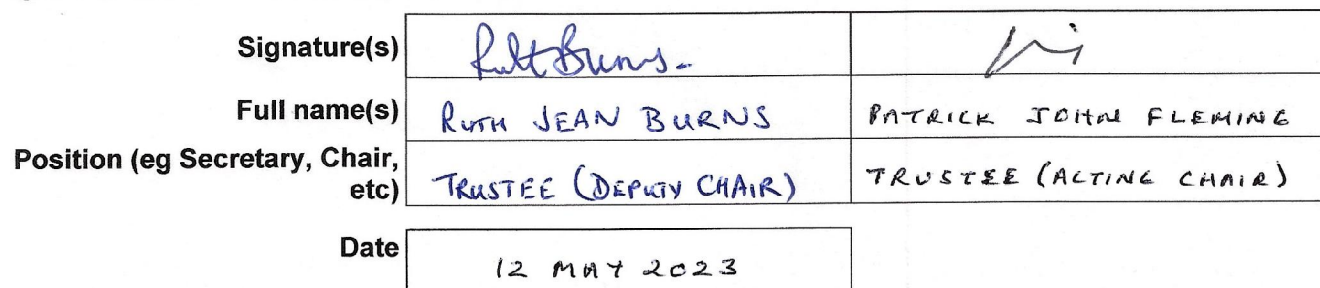 Signature(s) Ruth Burns.
Full name(s) RUTH JEAN BURNS PATRICK JOHN FLEMING
Position (eg Secretary, Chair,
etc) TRUSTEE (DEPUTY CHAIR) TRUSTEE (ACTING CHAIR)
Date 12 MAY 2023